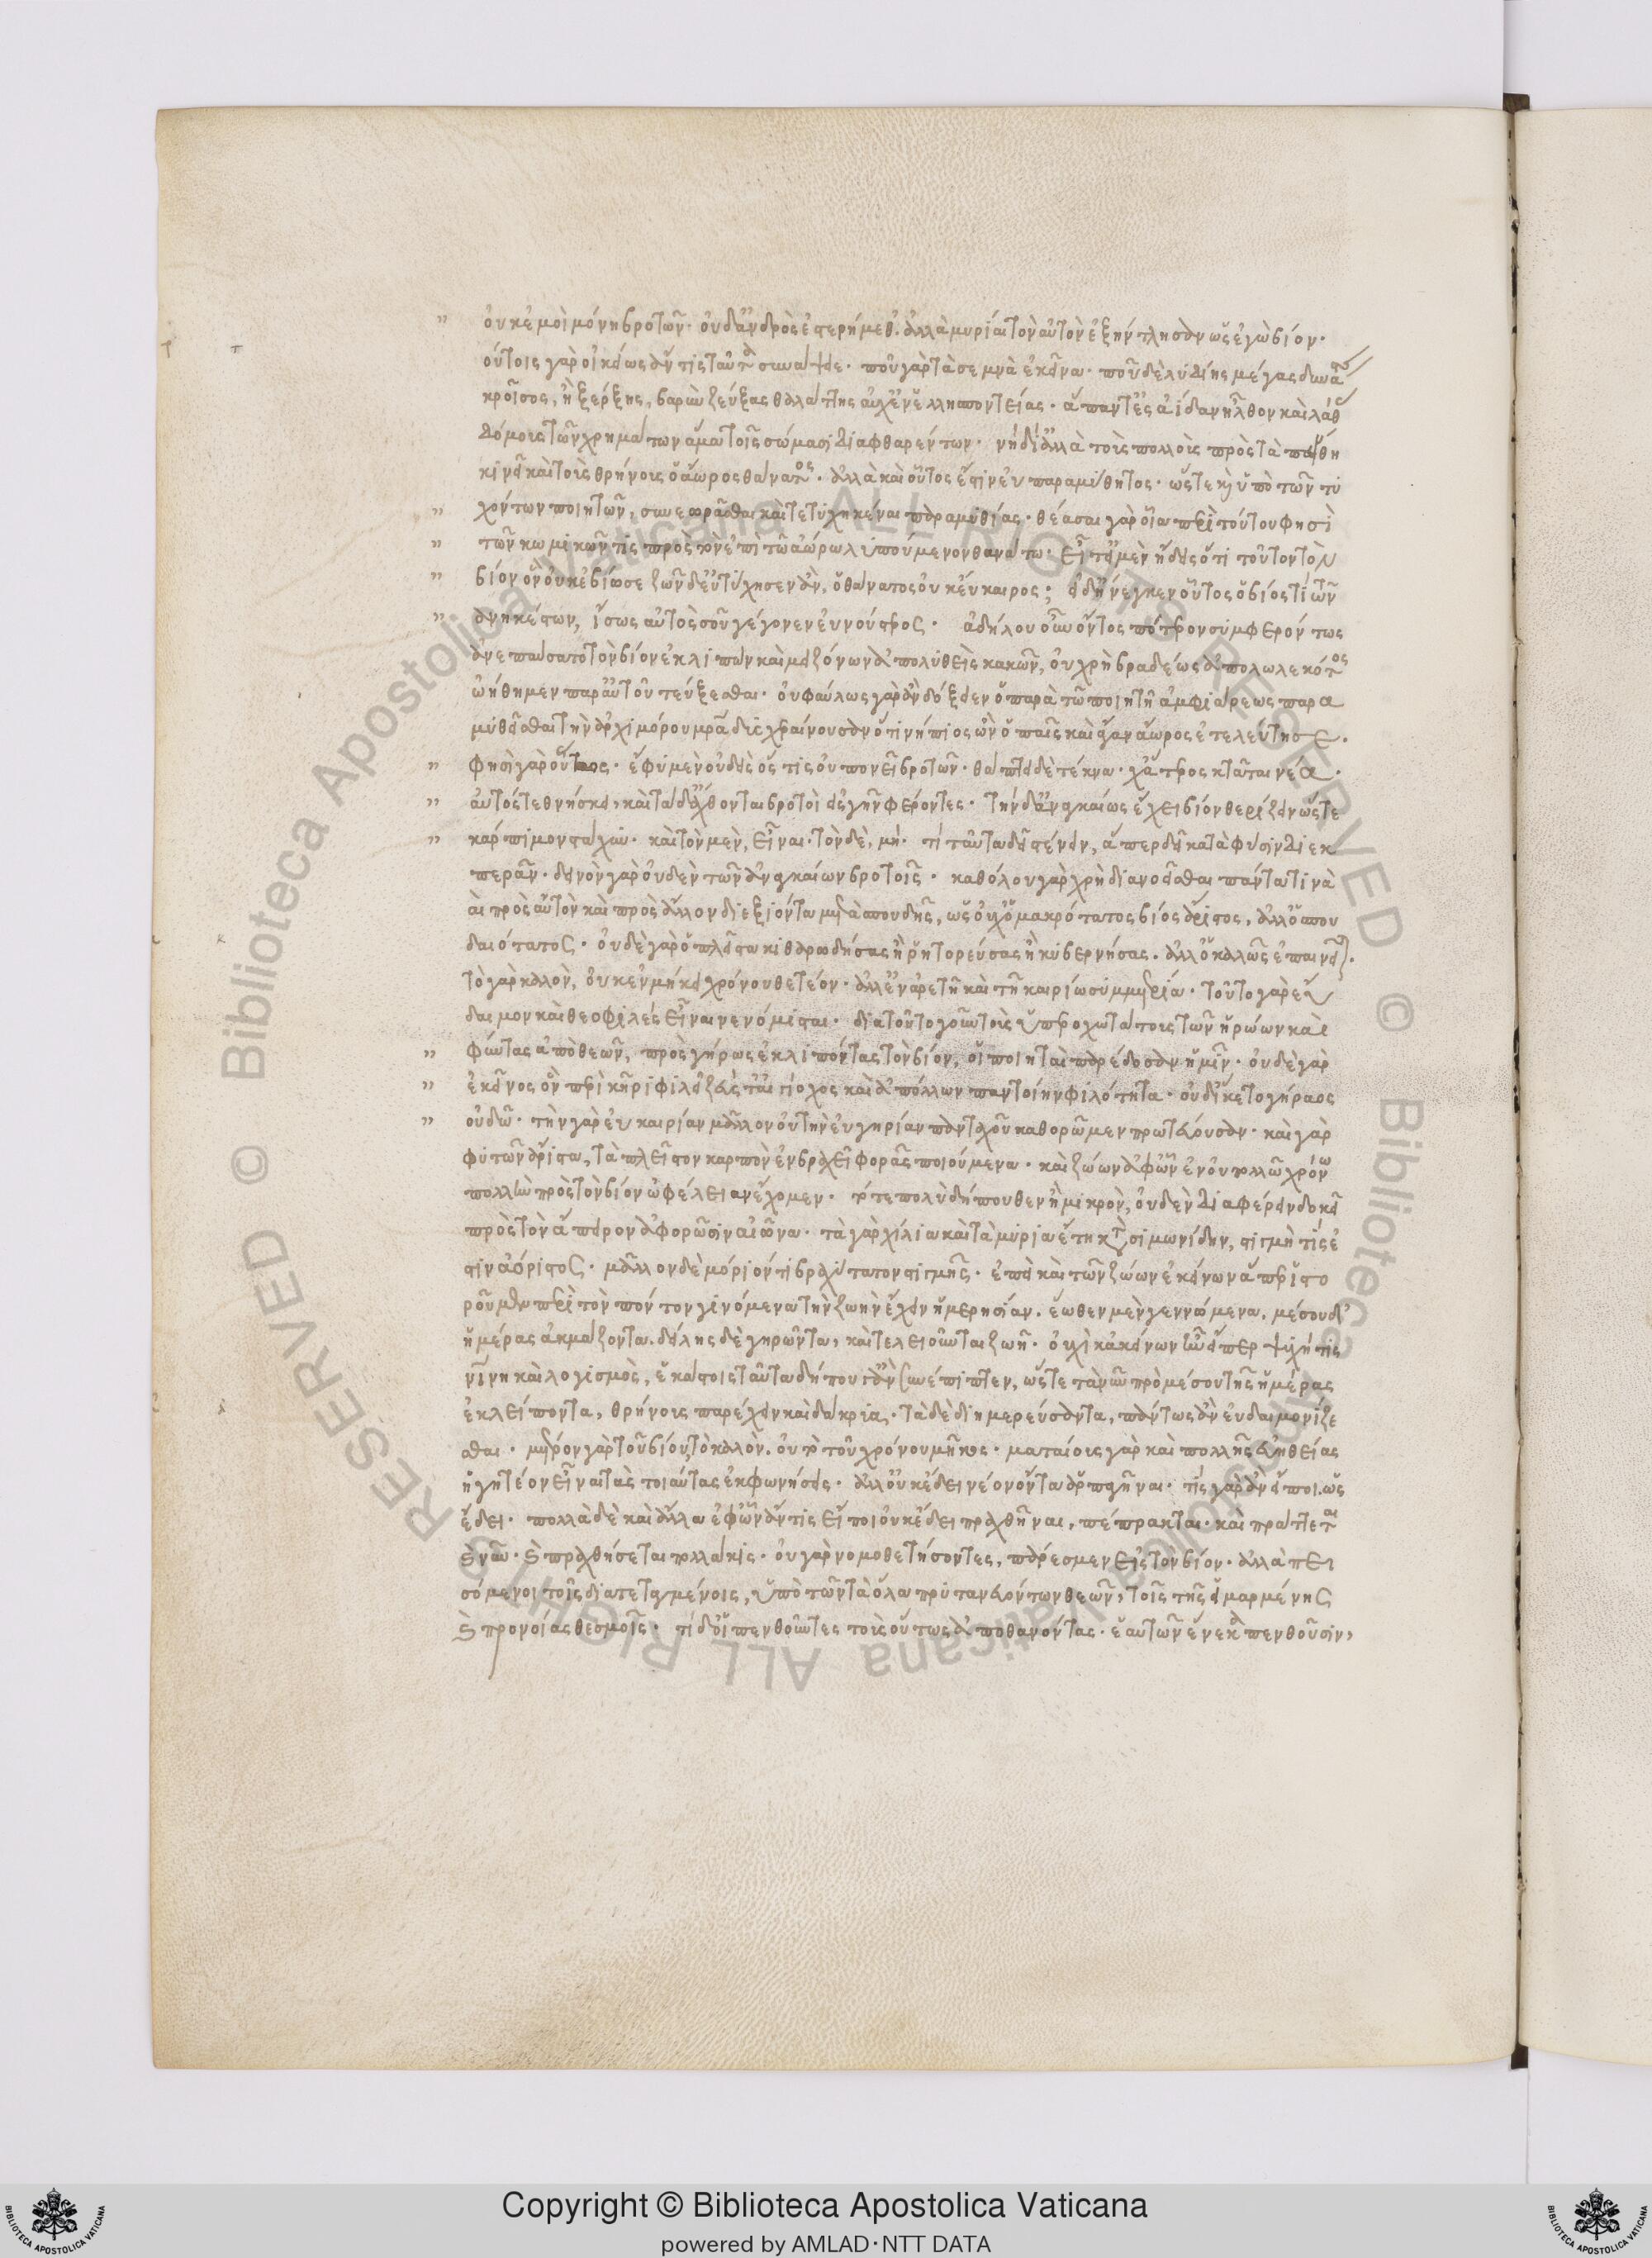 οὐκ ἐμοὶ μόνη βροτῶν· οὐδ' ἀνδρὸς ἐστερήμεθ'· ἀλλὰ μυρίαι τὸν αὐτὸν ἐξήντλησαν ὡς ἐγὼ βίον·
οὕτοις γὰρ οἰκείως ἄν τις ταῦτα συνάψειε· ποῦ γὰρ τὰ σεμνὰ ἐκεῖνα· ποῦ δὲ λυδίης μέγας δυνά
κροῖσος, ἢ ξέρξης, βαρὺν ζεύξας θαλάττης αὐχέν' ἑλλησποντείας· ἅπαντες ἀίδαν ἦλθον καὶ λάθ
δόμοις τῶν χρημάτων ἅμα τοῖς σώμασι διαφθαρέντων· νὴ δί' ἀλλὰ τοὺς πολλοὺς πρὸς τὰ πένθη
κινεῖ καὶ τοὺς θρήνους ὁ ἄωρος θάνατος· ἀλλὰ καὶ οὗτος ἐστὶν εὐπαραμύθητος· ὥστε καὶ ὑπὸ τῶν τυ
χόντων ποιητῶν, συνεωρᾶσθαι καὶ τετυχηκέναι παραμυθίας· θέασαι γὰρ οἷα περὶ τούτου φησὶ
τῶν κωμικῶν τὶς πρὸς τὸν ἐπὶ τῶ ἀώρω λυπούμενον θανάτω· εἶτ' εἰ μὲν ᾔδεις ὅτι τοῦτον τὸν
βίον ὃν οὐκ ἐβίωσε ζῶν διευτύχησεν ἂν, ὁ θάνατος οὐκ εὔκαιρος; εἰ δ' ἤνεγκεν οὗτος ὁ βίος τί τῶν
ἀνηκέστων, ἴσως αὐτὸς σοῦ γέγονεν εὐνούστερος· ἀδήλου οὖν ὄντος πότερον συμφερόντως
ἀνεπαύσατο τὸν βίον ἐκλιπὼν καὶ μειζόνων ἀπολυθεὶς κακῶν, οὐ χρὴ βραδέως ἀπολωλεκότος
ᾠήθημεν παρ' αὐτοῦ τεύξεσθαι· οὐ φαύλως γὰρ ἂν δόξειεν ὁ παρὰ τῶ ποιητῇ ἀμφιάρεως παρα
μυθεῖσθαι τὴν ἀρχιμόρου μητέρα δυσχεραίνουσαν ὅτι νήπιος ὢν ὁ παῖς καὶ ἄγαν ἄωρος ἐτελεύτησε.
φησὶ γὰρ οὕτως· ἔφυ μὲν οὐδεὶς ὅστις οὐ πονεῖ βροτῶν· θάπτει δὲ τέκνα· χἄτερος κτᾶται νέα.
αὐτός τε θνήσκει, καὶ τάδ' ἄχθονται βροτοὶ εἰς γῆν φέροντες· τὴν δ' ἀναγκαίως ἔχει βίον θερίζειν ὥστε
κάρπιμον στάχυν· καὶ τὸν μὲν, εἶναι· τὸν δὲ, μή· τί ταῦτα δεῖ στένειν, ἅπερ δεῖ κατὰ φύσιν διεκ
περᾶν· δεινὸν γὰρ οὐδὲν τῶν ἀναγκαίων βροτοῖς· καθόλου γὰρ χρὴ διανοεῖσθαι πάντα τινὰ
αι πρὸς αὑτὸν καὶ πρὸς ἄλλον διεξιόντα μετὰ σπουδῆς, ὡς οὐχ ὁ μακρότατος βίος ἄριστος, ἀλλ' ὁ σπου
δαιότατος· οὐδὲ γὰρ ὁ πλεῖστα κιθαρωδήσας ἢ ῥητορεύσας ἢ κυβερνήσας. ἀλλ' ὁ καλῶς ἐπαινεῖται.
τὸ γὰρ καλὸν, οὐκ ἐν μήκει χρόνου θετέον· ἀλλ' ἐν ἀρετῇ καὶ τῇ καιρίω συμμετρία· τοῦτο γὰρ εὔ
δαιμον καὶ θεοφιλὲς εἶναι νενόμισται· διὰ τοῦτο γοῦν τοὺς ὑπεροχωτάτους τῶν ἡρώων καὶ
φύντας ἀπὸ θεῶν, πρὸς γήρως ἐκλιπόντας τὸν βίον, οἱ ποιηταὶ παρέδοσαν ἡμῖν· οὐδὲ γὰρ
ἐκεῖνος ὃν περὶ κῆρι φίλει ζεὺς τ' αἰγίοχος καὶ ἀπόλλων παντοίην φιλότητα· οὐδ' ἵκετο γήραος
οὐδῶ· τὴν γὰρ εὐκαιρίαν μᾶλλον οὐ τὴν εὐγηρίαν πανταχοῦ καθορῶμεν πρωτεύουσαν· καὶ γὰρ
φυτῶν ἄριστα, τὰ πλεῖστον καρπὸν ἐν βραχεῖ φορὰς ποιούμενα· καὶ ζώων ἀφ' ὧν ἐν οὐ πολλῶ χρόνω
πολλὴν πρὸς τὸν βίον ὠφέλειαν ἔχομεν· τό τε πολὺ δήπουθεν ἢ μικρὸν, οὐδὲν διαφέρειν δοκεῖ
πρὸς τὸν ἄπειρον ἀφορῶσιν αἰῶνα· τὰ γὰρ χίλια καὶ τὰ μύρια ἔτη κατὰ σιμωνίδην, στιγμὴ τίς ἐ
στιν ἀόριστος· μᾶλλον δὲ μόριόν τι βραχύτατον στιγμῆς· ἐπεὶ καὶ τῶν ζώων ἐκείνων ἅπερ ἱστο
ροῦσι περὶ τὸν πόντον γινόμενα τὴν ζωὴν ἔχειν ἡμερησίαν. ἕωθεν μὲν γεννώμενα. μέσου δ'
ἡμέρας ἀκμάζοντα. δείλης δὲ γηρῶντα, καὶ τελειοῦντα ζωήν· οὐχὶ κἀκείνων ἦν εἴπερ ψυχή τις
νίνη καὶ λογισμὸς, ἑκάστοις ταῦτα δήπου γ' ἂν συνέπιπτεν, ὥστε τὰ νῦν πρὸ μέσου τῆς ἡμέρας
ἐκλείποντα, θρήνους παρέχειν καὶ δάκρυα. τὰ δὲ διημερεύσαντα, πάντως ἂν εὐδαιμονίζε
σθαι· μέτρον γὰρ τοῦ βίου, τὸ καλὸν. οὐ τὸ τοῦ χρόνου μῆκος· ματαίους γὰρ καὶ πολλῆς εὐηθείας
ἡγητέον εἶναι τὰς τοιαύτας ἐκφωνήσεις· ἀλλ' οὐκ ἔδει νέον ὄντα ἁρπαγῆναι· τίς γὰρ ἂν εἴποι. ὡς
ἔδει· πολλὰ δὲ καὶ ἄλλα ἐφ' ὧν ἄν τις εἴποι οὐκ ἔδει πραχθῆναι, πέπρακται· καὶ πράττεται
καὶ νῦν· καὶ πραχθήσεται πολλάκις· οὐ γὰρ νομοθετήσοντες, πάρεσμεν εἰς τὸν βίον. ἀλλὰ πει
σόμενοι τοῖς διατεταγμένοις, ὑπὸ τῶν τὰ ὅλα πρυτανευόντων θεῶν, τοῖς τῆς εἱμαρμένης
καὶ προνοίας θεσμοῖς· τί δ' οἱ πενθοῦντες τοὺς οὕτως ἀποθανόντας. ἑαυτῶν ἕνεκα πενθοῦσιν,